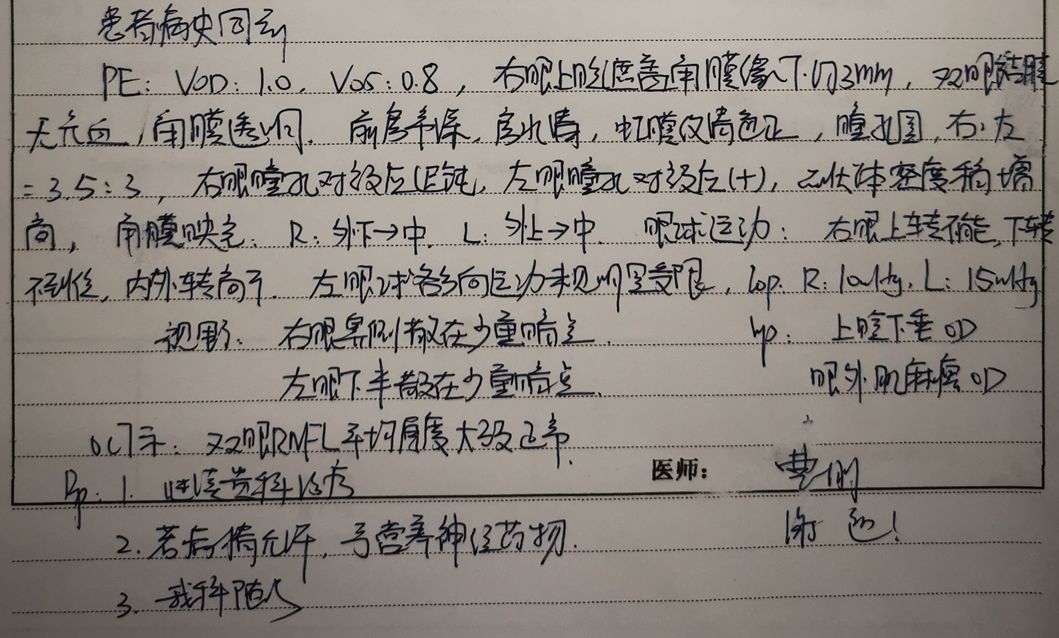 患者病史同前
PE: VOD: 1.0, VOS: 0.8, 右眼上睑遮盖角膜缘下约3mm, 双眼结膜
无充血, 角膜透明, 前房中深, 房水清, 虹膜纹清色正, 瞳孔圆, 右:左
=3.5:3, 右眼瞳孔对光反应迟钝, 左眼瞳孔对光反应(+), 晶状体密度稍增
高, 角膜映光: R: 外下→中. L: 外上→中. 眼球运动: 右眼上转不能, 下转
不到位, 内外转尚可. 左眼球各方向运动未见明显受限, Iop. R: 10mmHg. L: 15mmHg
视野: 右眼鼻侧散在少量暗点. Ip: 上睑下垂 OD
左眼下半散在少量暗点. 眼外肌麻痹 OD
OCT示: 双眼RNFL平均厚度大致正常.
医师:
Rp: 1. 继续贵科治疗
2. 若病情允许, 予营养神经药物. 谢邀!
3. 我科随诊